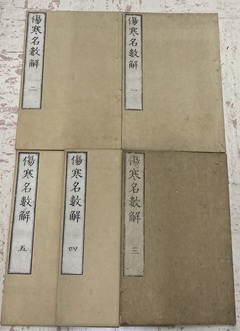 傷寒名數解 一
傷寒名數解 二
傷寒名數解 三
傷寒名數解 四
傷寒名數解 五